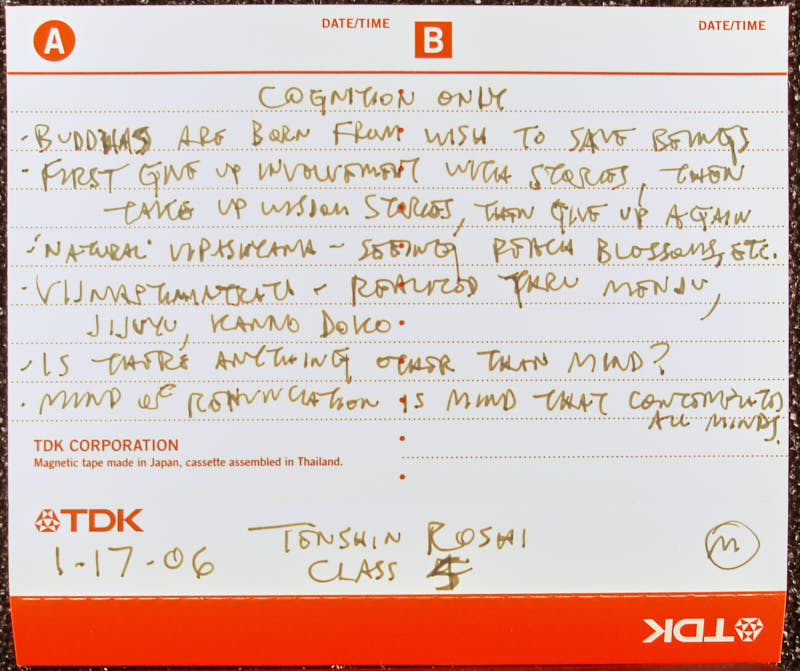 A DATE/TIME B DATE/TIME
COGNITION ONLY
· BUDDHAS ARE BORN FROM WISH TO SAVE BEINGS
· FIRST GIVE UP INVOLVEMENT WITH STORIES, THEN
TAKE UP WISDOM STORIES, THEN GIVE UP AGAIN
· 'NATURAL' VIPASHYANA – SEEING PEACH BLOSSOMS, ETC.
· VIJNAPTIMATRATA – REALIZED THRU MENJU,
JIJUYU, KANNO DOKO
· IS THERE ANYTHING OTHER THAN MIND?
· MIND OF RENUNCIATION IS MIND THAT CONTEMPLATES
ALL MINDS.
TDK CORPORATION
Magnetic tape made in Japan, cassette assembled in Thailand.
TDK
TENSHIN ROSHI
1-17-06
CLASS 5
M
TDK